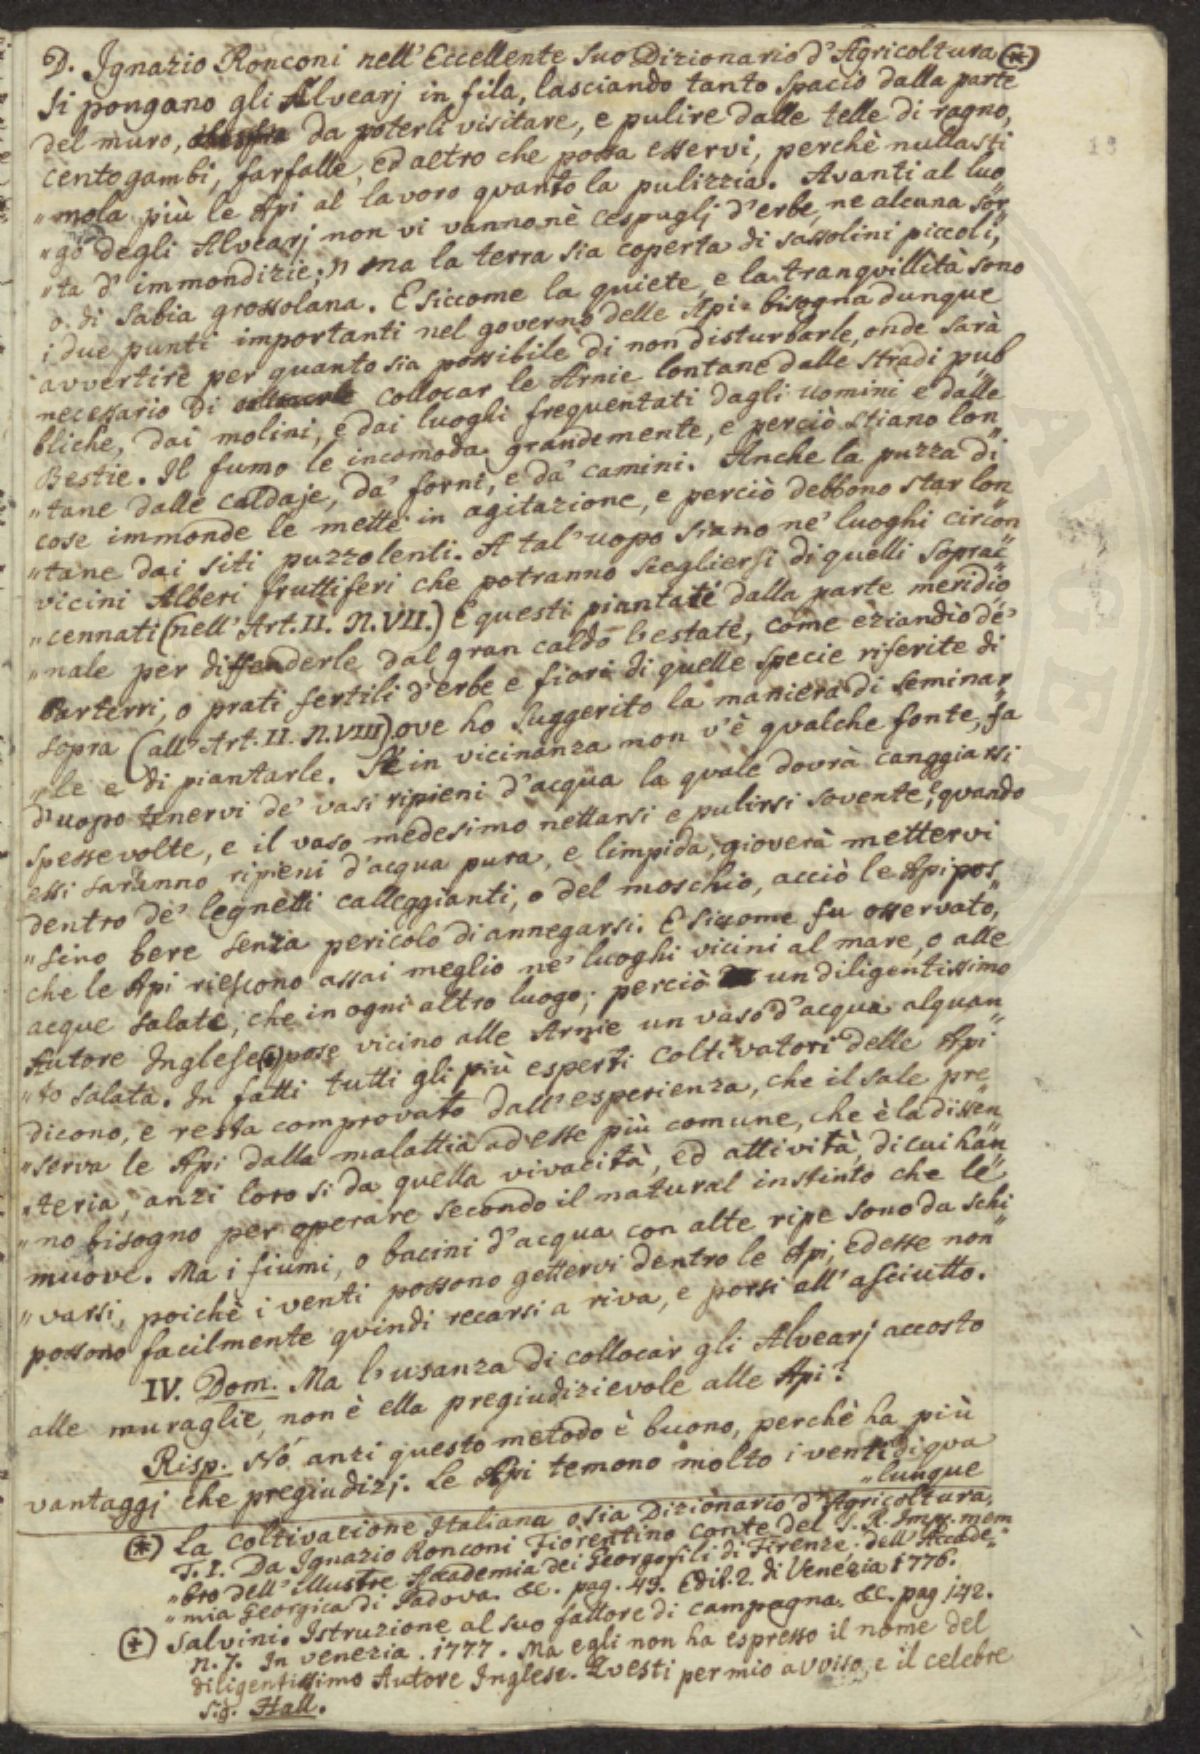 D. Ignazio Ronconi nell' Eccellente suo Dizionario d' Agricoltura (*)
Si pongano gli Alvearj in fila, lasciando tanto spacio dalla parte
del muro, da poterli visitare, e pulire dalle telle di ragno,
centogambi, farfalle, ed altro che possa esservi, perchè nulla sti
"mola più le Api al lavoro quanto la pulizzia. Avanti al luo
"go degli Alvearj non vi vanno nè cespuglj d'erbe, ne alcuna sor
"ta d' immondizie; ma la terra sia coperta di sassolini piccoli,
o di sabia grossolana. E siccome la quiete, e la tranquillità sono
i due punti importanti nel governo delle Api: bisogna dunque
avvertire per quanto sia possibile di non disturbarle, onde sarà
necessario di collocar le Arnie lontane dalle stradi pub
bliche, dai molini, e dai luoghi frequentati dagli uomini e dalle
Bestie. Il fumo le incomoda grandemente, e perciò stiano lon
"tane dalle caldaje, da' forni, e da' camini. Anche la puzza di
cose immonde le mette in agitazione, e perciò debbono star lon
"tane dai siti puzzolenti. A tal' uopo siano ne' luoghi circon
vicini Alberi fruttiferi che potranno scegliersi di quelli soprac
"cennati (nell' Art. II. N. VII.) E questi piantati dalla parte meridio
"nale per diffenderle dal gran caldo l'estate, come eziandio de'
Parterri, o prati fertili d'erbe e fiori di quelle specie riferite di
sopra (all' Art. II. N. VIII) ove ho suggerito la maniera di seminar
"le e di piantarle. Se in vicinanza non v'è qualche fonte, fa
d'uopo tenervi de' vasi ripieni d'acqua la quale dovrà canggiarsi
spesse volte, e il vaso medesimo nettarsi e pulirsi sovente, e quando
essi saranno ripieni d'acqua pura, e limpida, gioverà mettervi
dentro de' legnetti calleggianti, o del moschio, acciò le Api pos
"sino bere senza pericolo di annegarsi. E siccome fu osservato,
che le Api riescono assai meglio ne' luoghi vicini al mare, o alle
acque salate, che in ogni altro luogo; perciò un diligentissimo
Autore Inglese (+) pose vicino alle Arnie un vaso d'acqua alquan
"to salata. In fatti tutti gli più esperti coltivatori delle Api
dicono, e resta comprovato dall' esperienza, che il sale pre
"serva le Api dalla malattia ad esse più comune, che è la dissen
"teria, anzi loro si da quella vivacità, ed attività, di cui han
"no bisogno per operare secondo il natural instinto che le
muove. Ma i fiumi, o bacini d'acqua con alte ripe sono da schi
"varsi, poichè i venti possono gettervi dentro le Api, ed esse non
possono facilmente quindi recarsi a riva, e porsi all' asciutto.
IV. Dom. Ma l'usanza di collocar gli Alvearj accosto
alle muraglie, non è ella pregiudizievole alle Api?
Risp. Nò anzi questo metodo è buono, perchè ha più
vantaggj che pregiudizj. Le Api temono molto i venti di qua
"lunque
(*) La Coltivazione Italiana o sia Dizionario d'Agricoltura,
T. I. Da Ignazio Ronconi Fiorentino Conte del S. R. Imp. mem
"bro dell' illustre Accademia dei Georgofili di Firenze; dell' Accade
"mia Georgica di Padova. &c. pag. 49. Edit. 2. di Venezia 1776.
(+) Salvini. Istruzione al suo fattore di campagna. &c. pag 142.
n. 7. In Venezia. 1777. Ma egli non ha espresso il nome del
diligentissimo Autore Inglese. Questi per mio avviso, e il celebre
Sig. Hall.